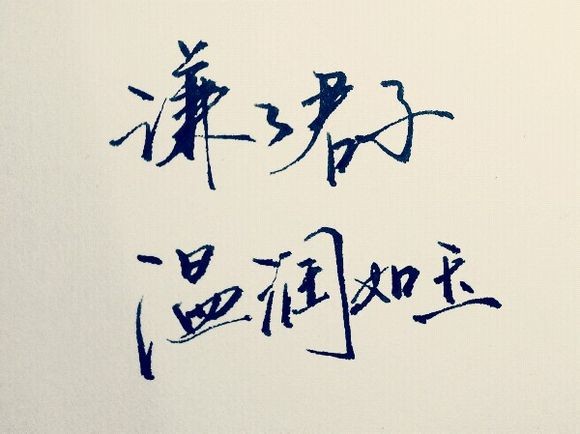 谦谦君子
温润如玉